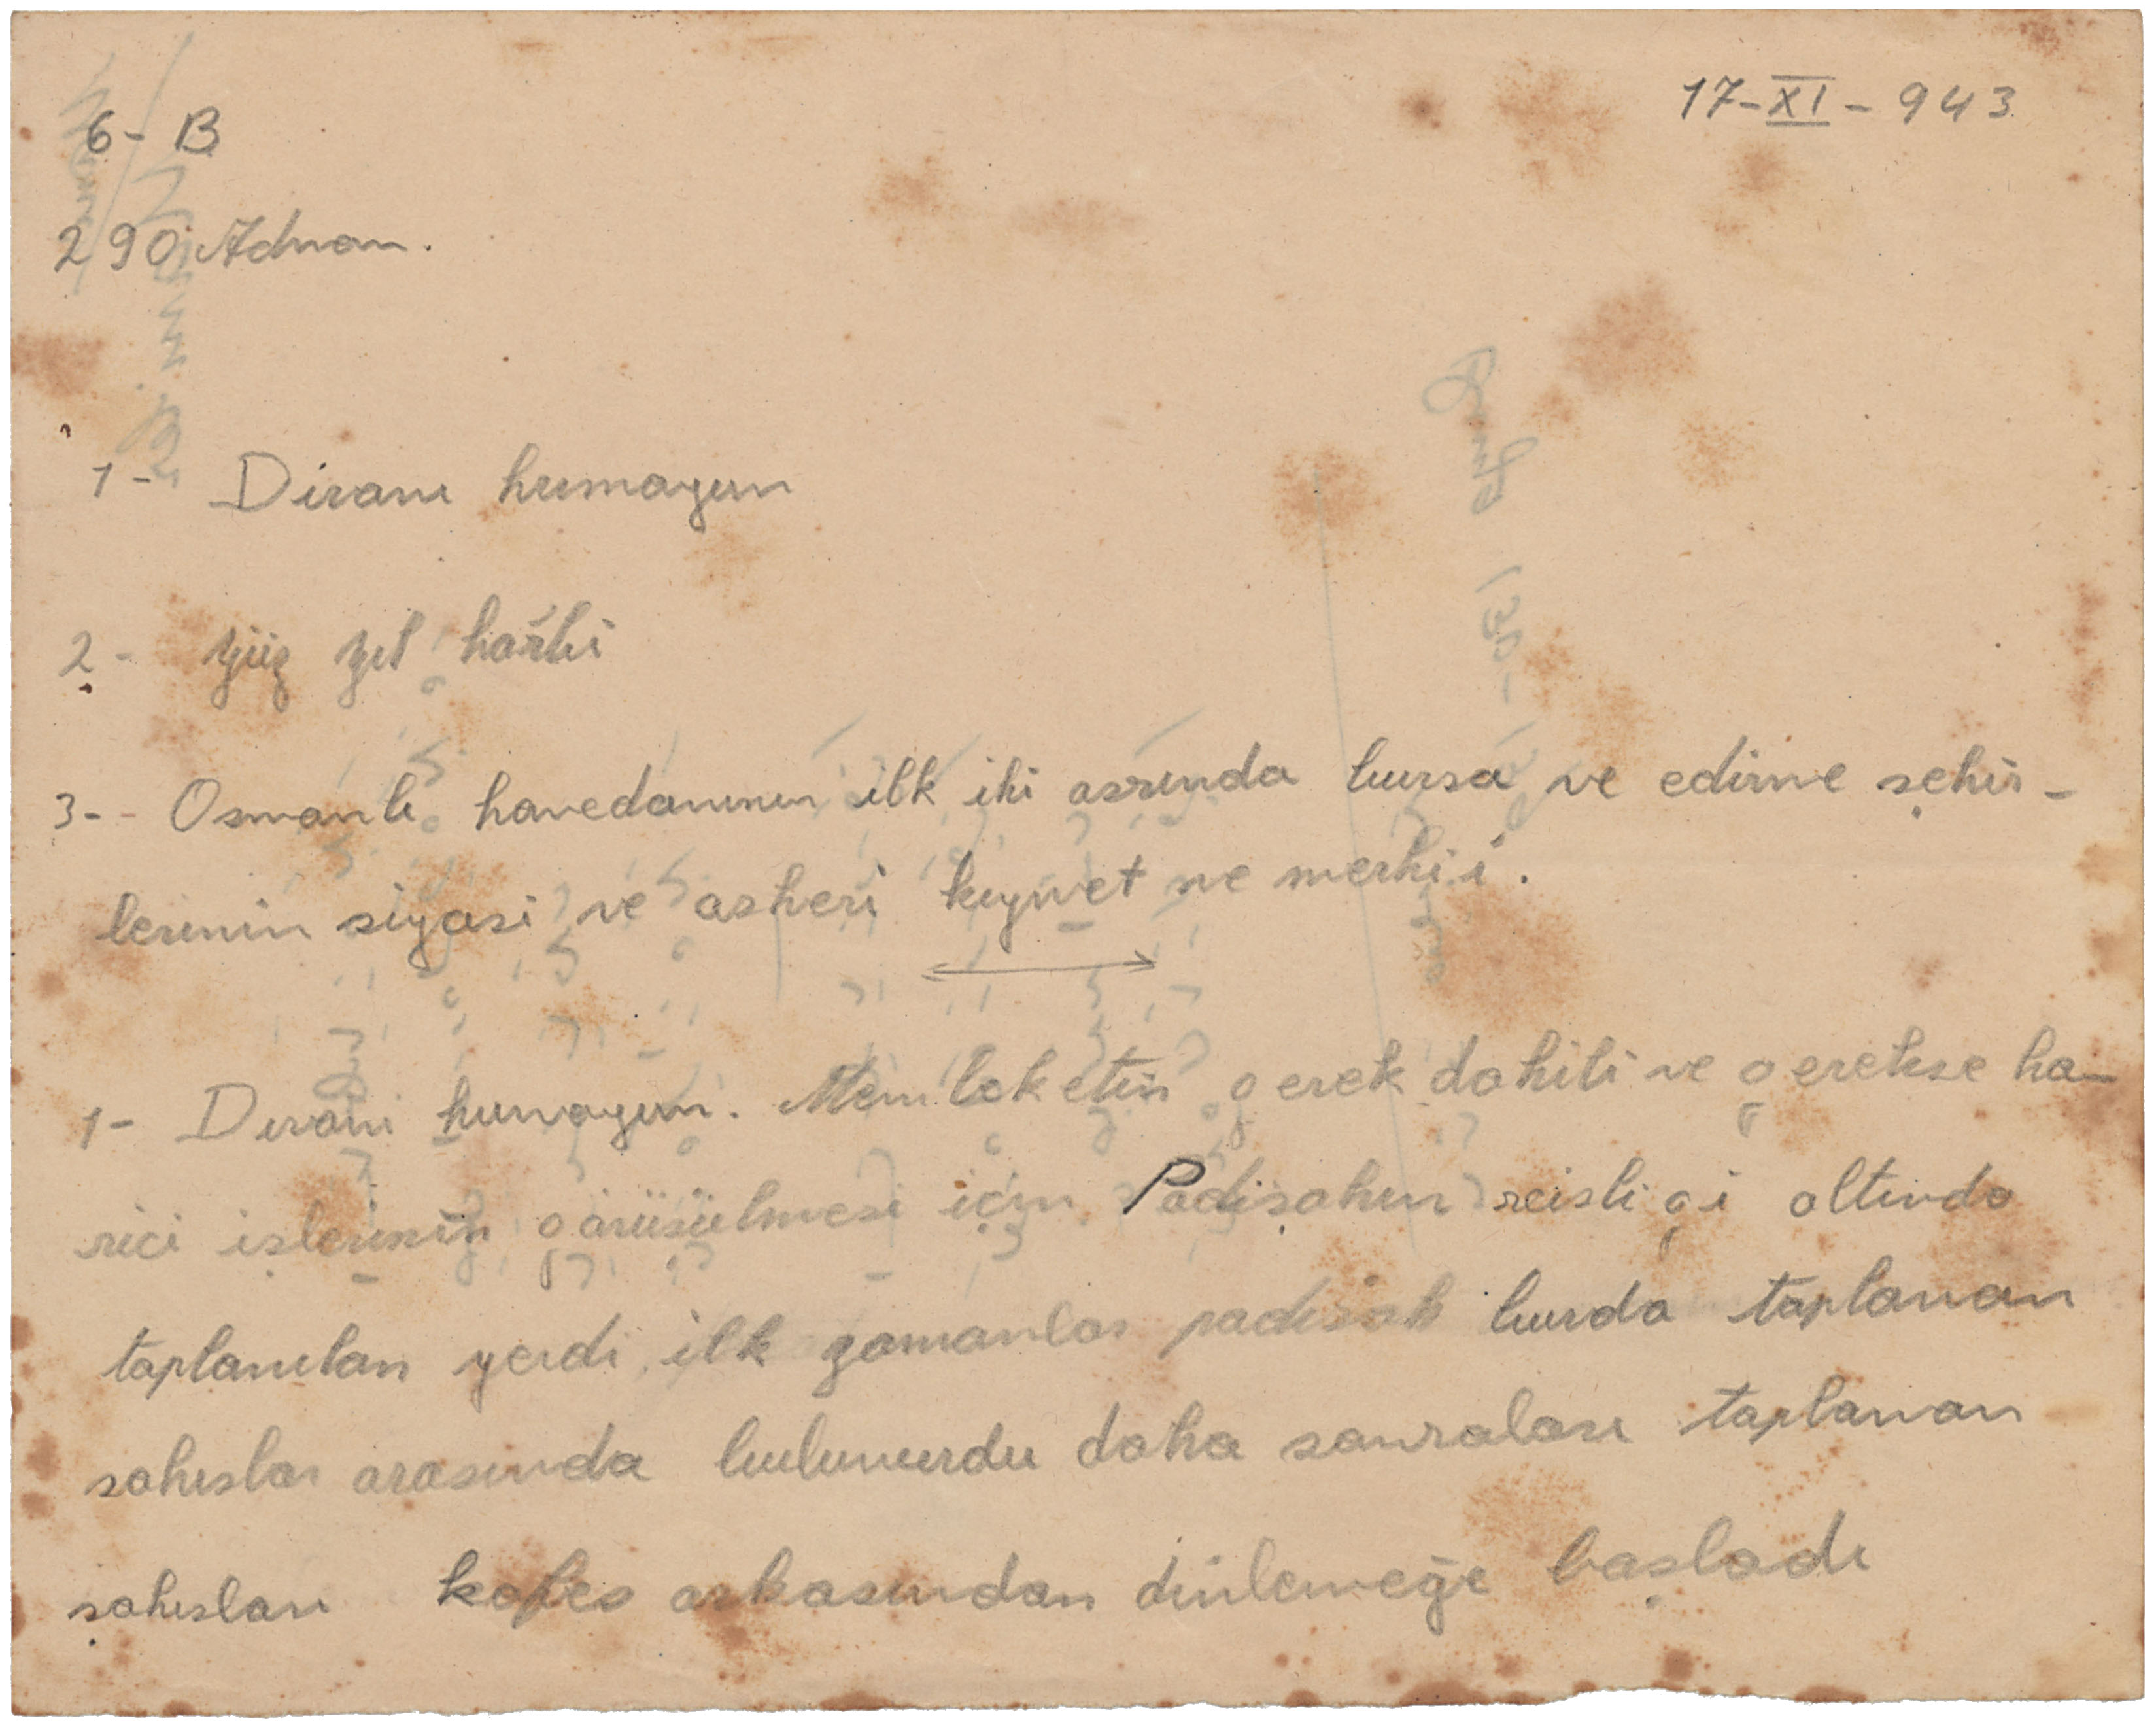 17-XI-943
6-B
290 Adnan.
1- Divanı humayun
2- yüz yıl harbi
3- Osmanlı hanedanının ilk iki asrında bursa ve edirne şehir-
lerinin siyasi ve askeri kıymet ve mevkii.
1- Divanı humayun. Memleketin gerek dahili ve gerekse ha-
rici işlerinin görüşülmesi için Padişahın reisliği altında
toplanılan yerdi, ilk zamanlar padişah burda toplanan
şahıslar arasında bulunurdu daha sonraları toplanan
şahısları kafes arkasından dinlemeğe başladı